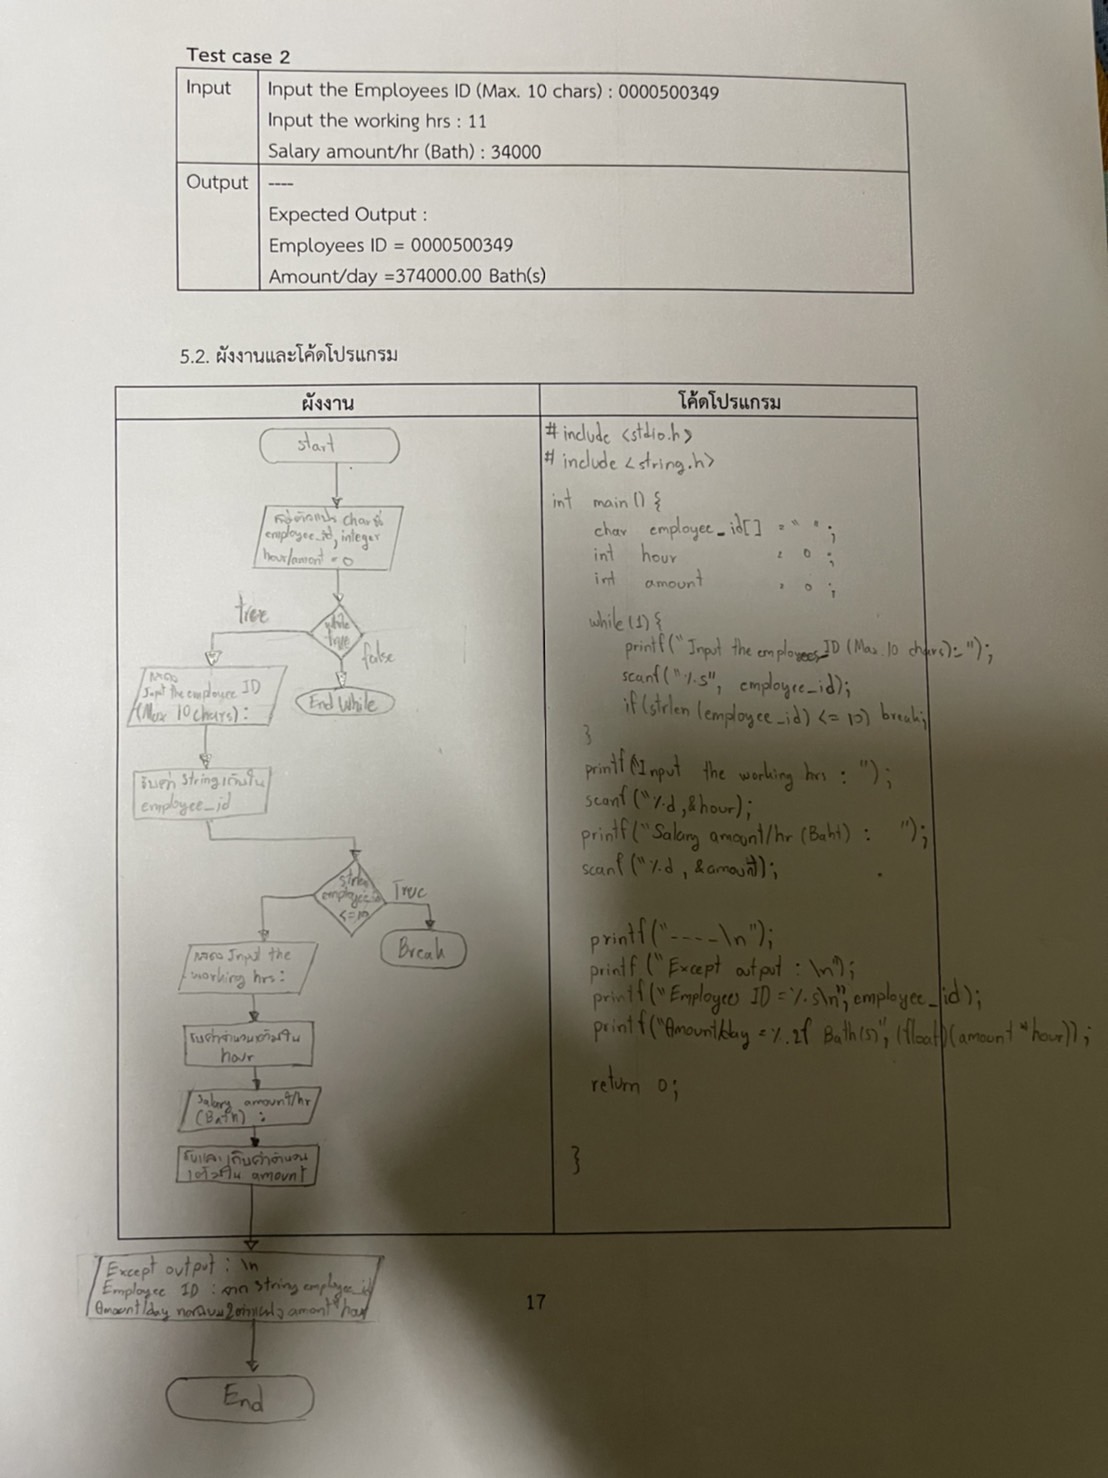 Test case 2
Input
Input the Employees ID (Max. 10 chars) : 0000500349
Input the working hrs : 11
Salary amount/hr (Bath) : 34000
Output
----
Expected Output :
Employees ID = 0000500349
Amount/day =374000.00 Bath(s)
5.2. ผังงานและโค้ดโปรแกรม
ผังงาน
start
char
employee_id, integer
hour/amont = 0
true
while
true
false
End While
Input the employee ID
(Max 10 chars) :
รับค่า string เก็บใน
employee_id
strlen
employee_id
<=10
True
Break
แสดง Input the
working hrs:
hour
Salary amount/hr
(Bath) :
amount
Except output : \n
Employee ID : จาก string employee_id
Amount/day ทศนิยม 2 ตำแหน่ง amont*hour
End
โค้ดโปรแกรม
#include <stdio.h>
#include <string.h>
int main () {
char employee_id[] = " ";
int hour = 0 ;
int amount = 0 ;
while (1) {
printf("Input the employees ID (Max.10 chars):");
scanf("%s", employee_id);
if(strlen(employee_id) <= 10) break;
}
printf("Input the working hrs : ");
scanf("%d,&hour);
printf("Salary amount/hr (Baht) : ");
scanf("%d, &amount);
printf("----\n");
printf("Except output : \n");
printf("Employees ID = %s\n", employee_id);
printf("Amount/day = %.2f Bath(s)", (float)(amount * hour));
return 0;
}
17